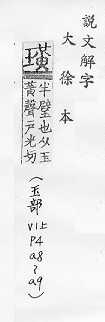 說文解字
大徐本
璜
半璧也从玉
黃聲戶光切
(玉部V1上P4a8~a9)